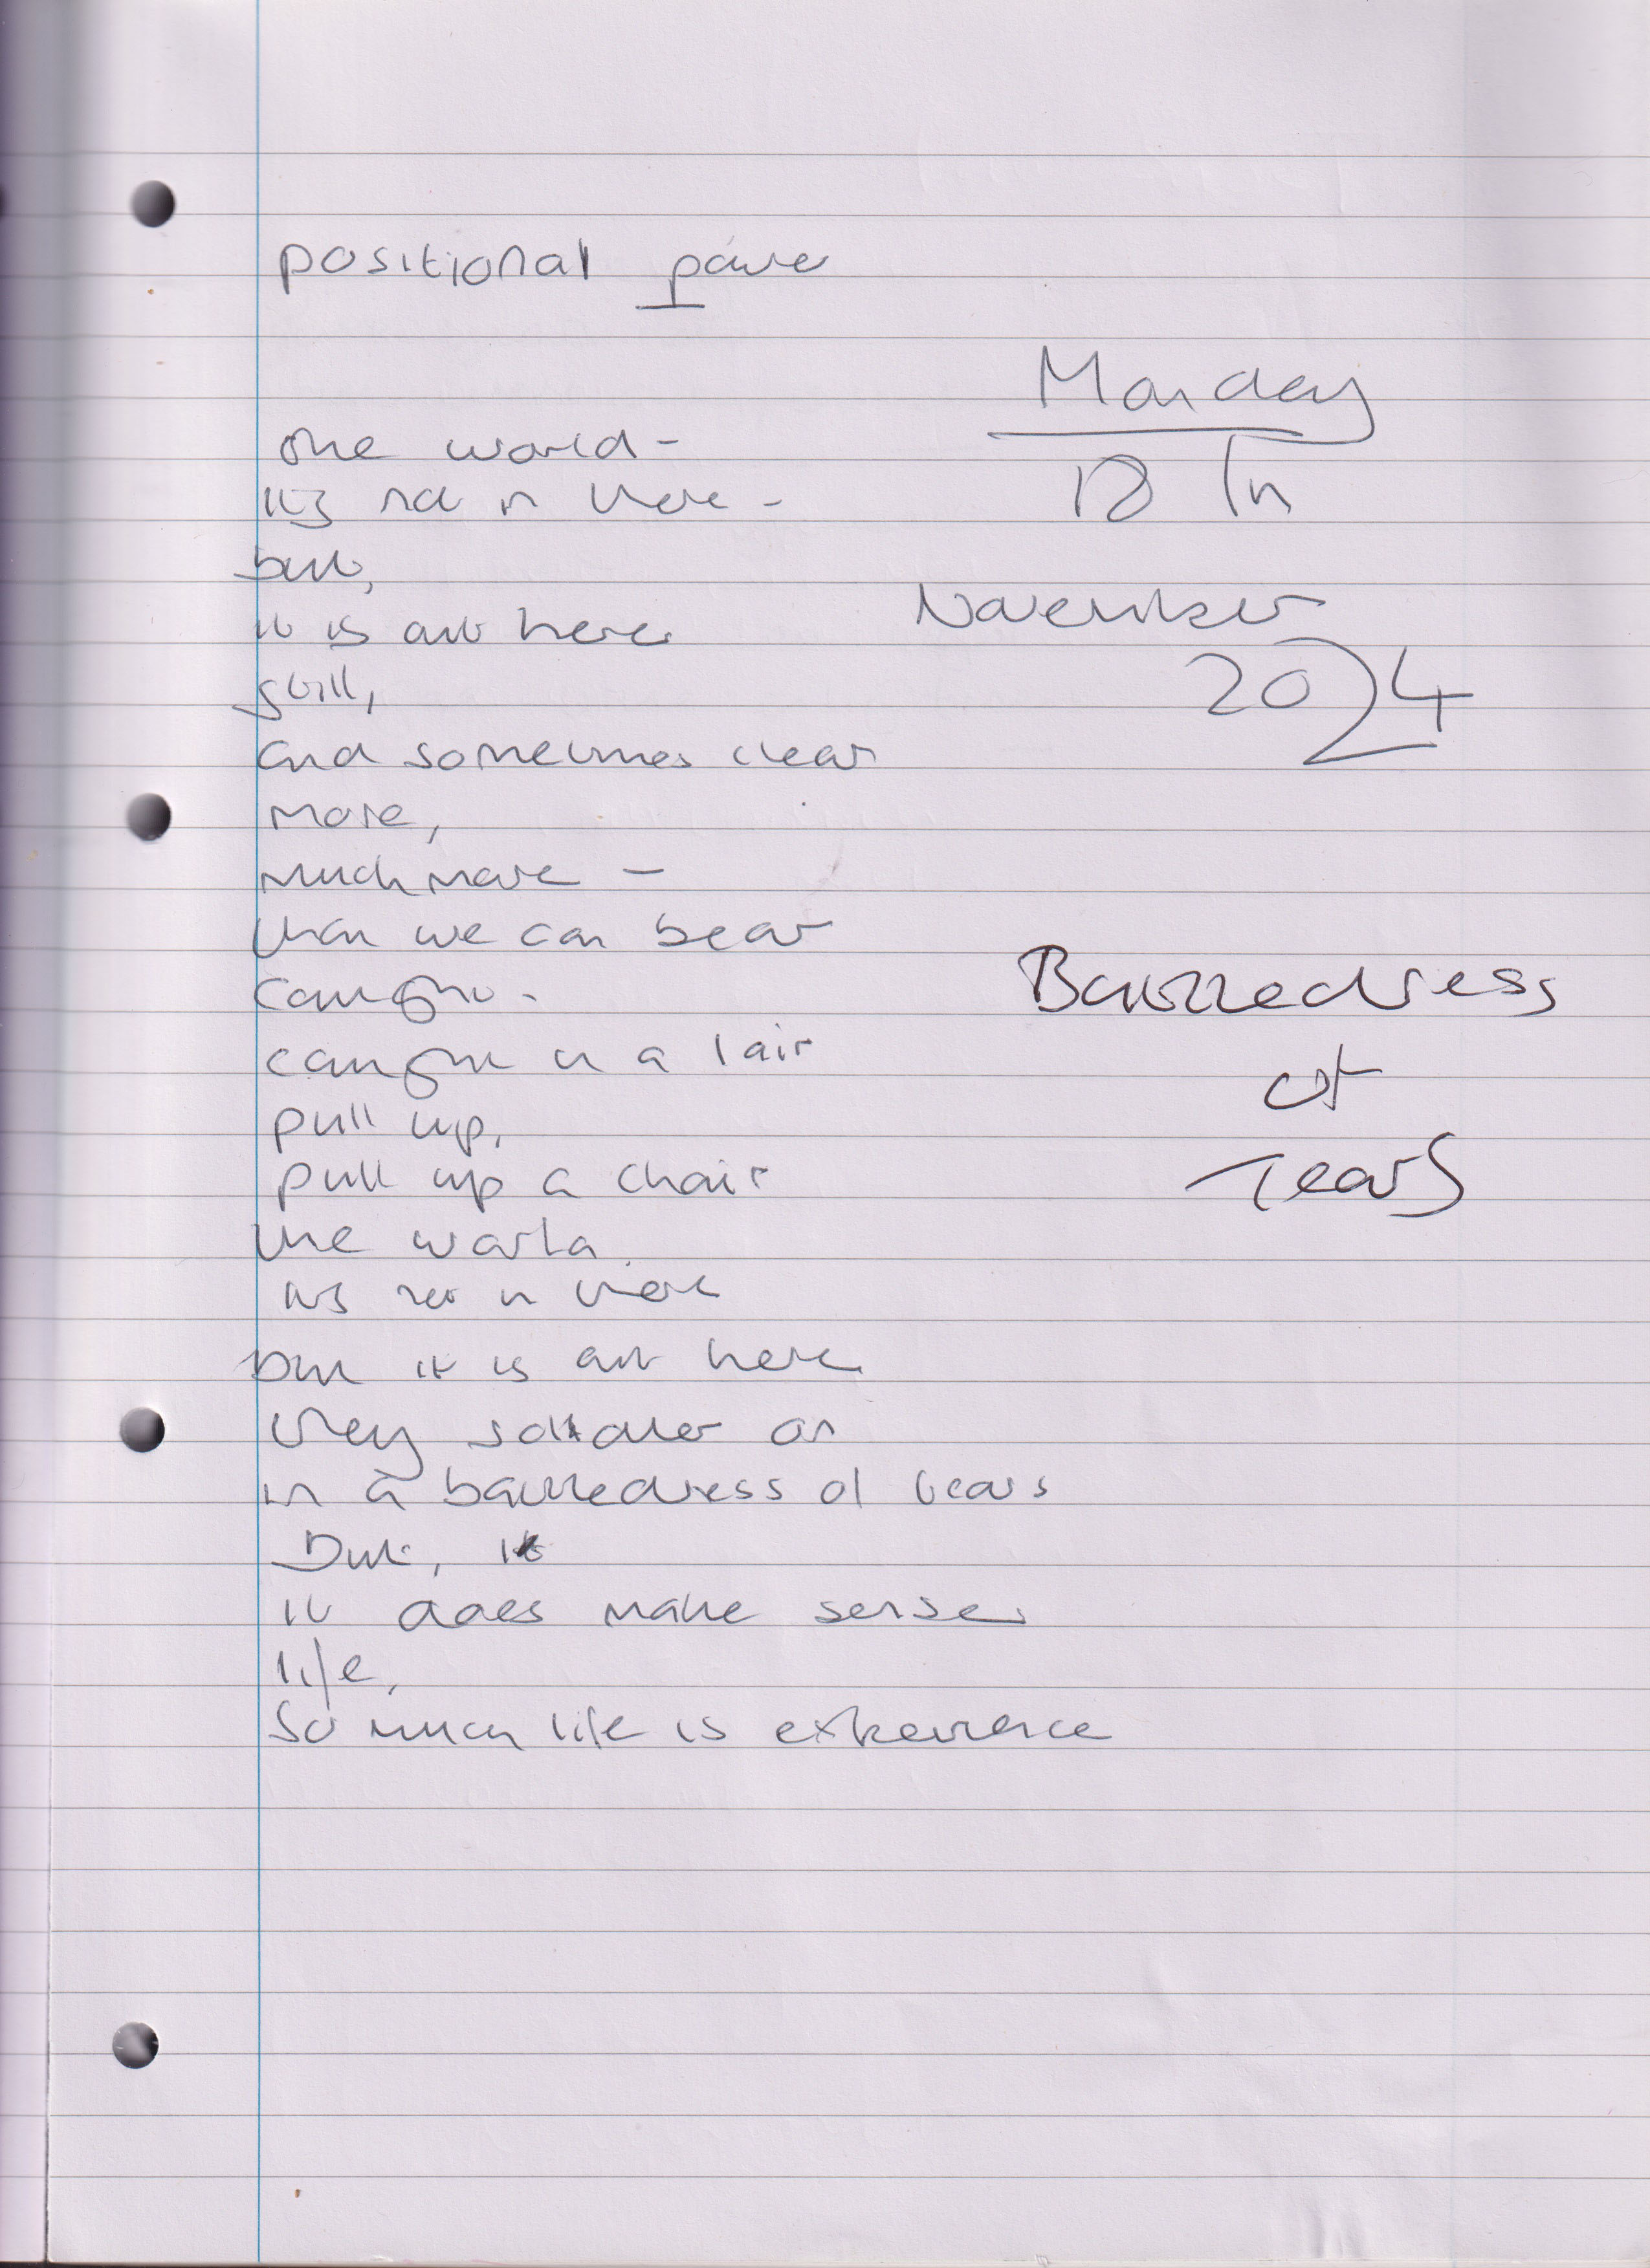 positional power
Monday
18 Th
November
2024
one world -
its not in there -
but,
it is out here
still,
and sometimes clear
more,
much more -
than we can bear
caught -
caught in a lair
pull up,
pull up a chair
the world
its not in there
but it is out here
they soldier on
in a battledress of tears
But, it
it does make sense
life,
so much life is experience
Battledress
of
Tears